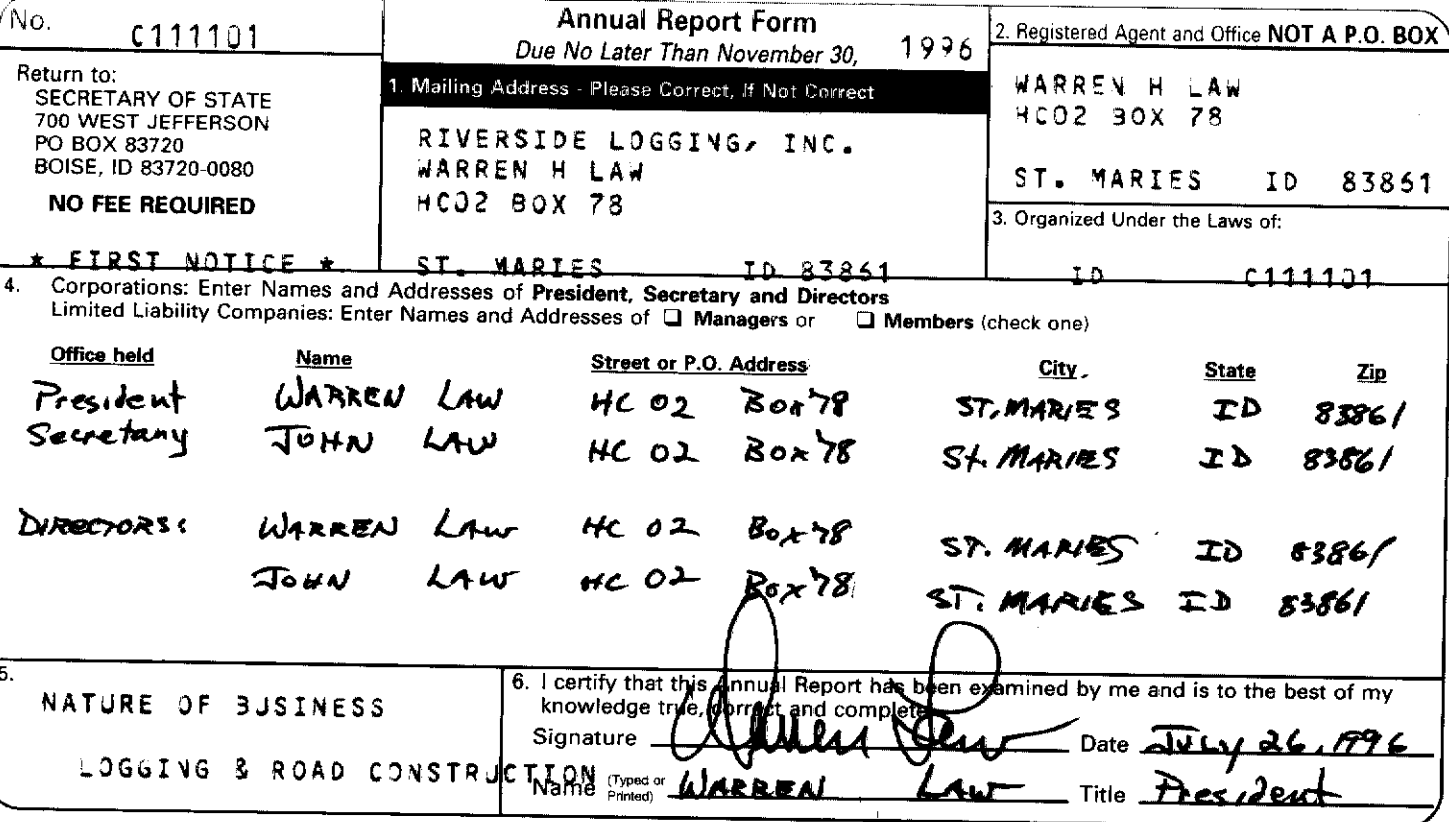 No. C111101
Return to:
SECRETARY OF STATE
700 WEST JEFFERSON
PO BOX 83720
BOISE, ID 83720-0080
NO FEE REQUIRED
* FIRST NOTICE *
Annual Report Form
Due No Later Than November 30, 1996
1. Mailing Address - Please Correct, If Not Correct
RIVERSIDE LOGGING, INC.
WARREN H LAW
HC02 BOX 78
ST. MARIES ID 83861
2. Registered Agent and Office NOT A P.O. BOX
WARREN H LAW
HC02 BOX 78
ST. MARIES ID 83861
3. Organized Under the Laws of:
ID C111101
4. Corporations: Enter Names and Addresses of President, Secretary and Directors
Limited Liability Companies: Enter Names and Addresses of ❑ Managers or ❑ Members (check one)
Office held Name Street or P.O. Address City State Zip
President WARREN LAW HC 02 Box 78 ST. MARIES ID 83861
Secretary JOHN LAW HC 02 Box 78 St. MARIES ID 83861
DIRECTORS: WARREN LAW HC 02 Box 78 ST. MARIES ID 83861
JOHN LAW HC 02 Box 78 ST. MARIES ID 83861
5. NATURE OF BUSINESS
LOGGING & ROAD CONSTRUCTION
6. I certify that this Annual Report has been examined by me and is to the best of my
knowledge true, correct and complete
Signature Warren Law Date JULY 26, 1996
Name (Typed or Printed) WARREN LAW Title President